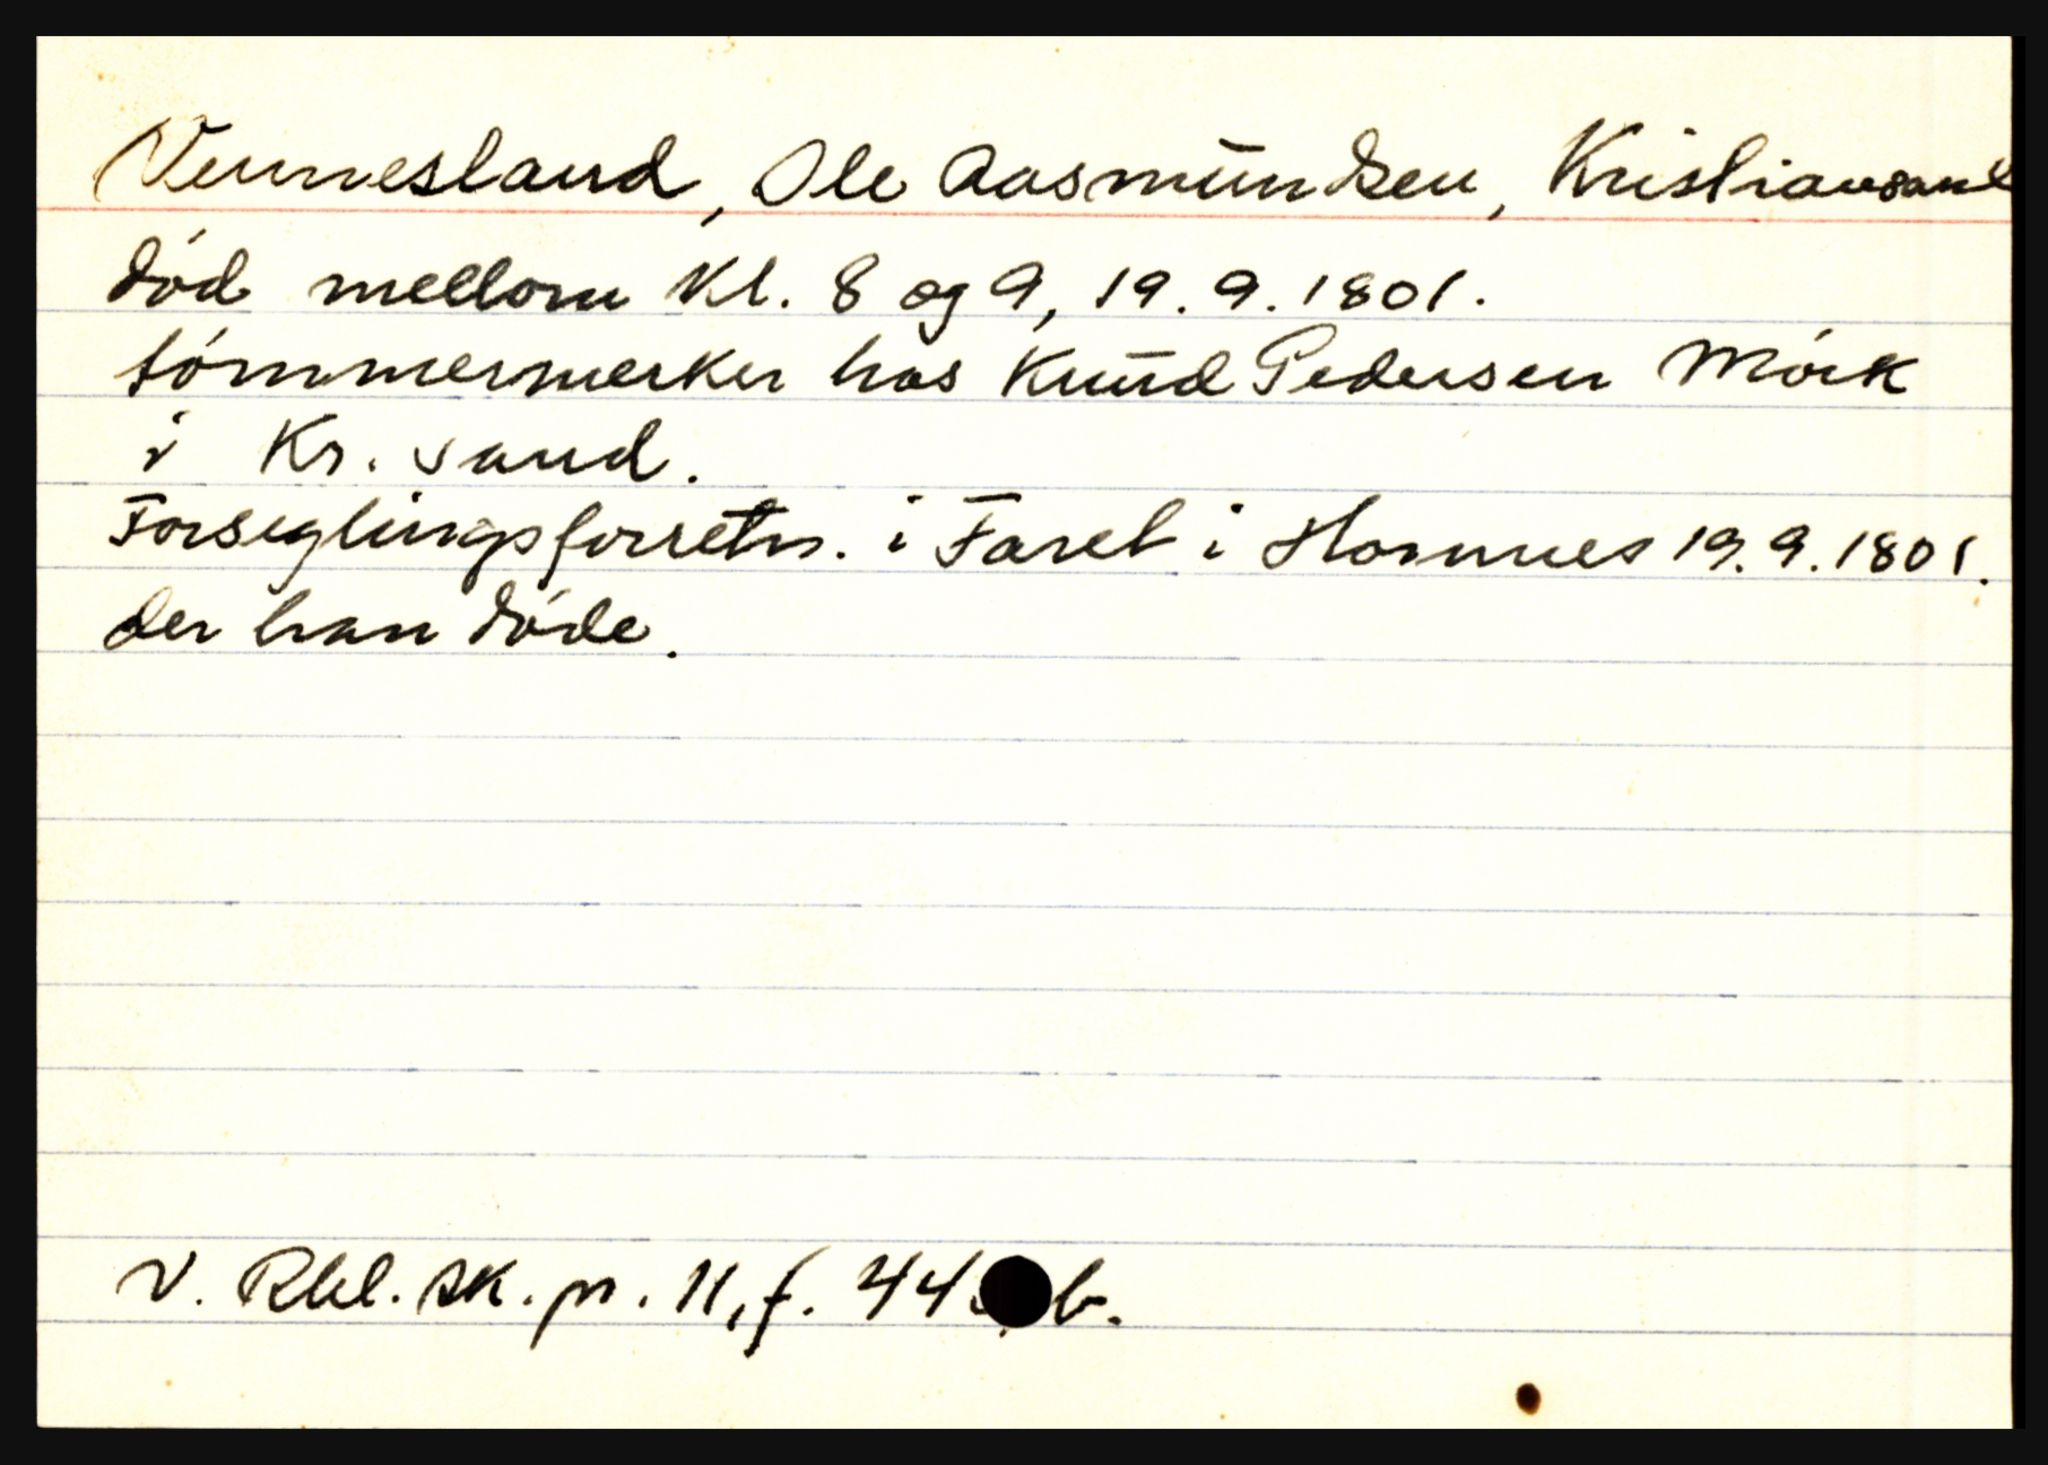 Vennesland, Ole Aasmundsen, Kristiansand
död mellom kl. 8 og 9, 19. 9. 1801.
tömmermerker hos Knud Pedersen Mörk
i Kr. sand.
Forseglingsforretn. i Faret i Homnes 19. 9. 1801.
der han döde.
V. Rbl. sk. pr. 11, f. 44 b.